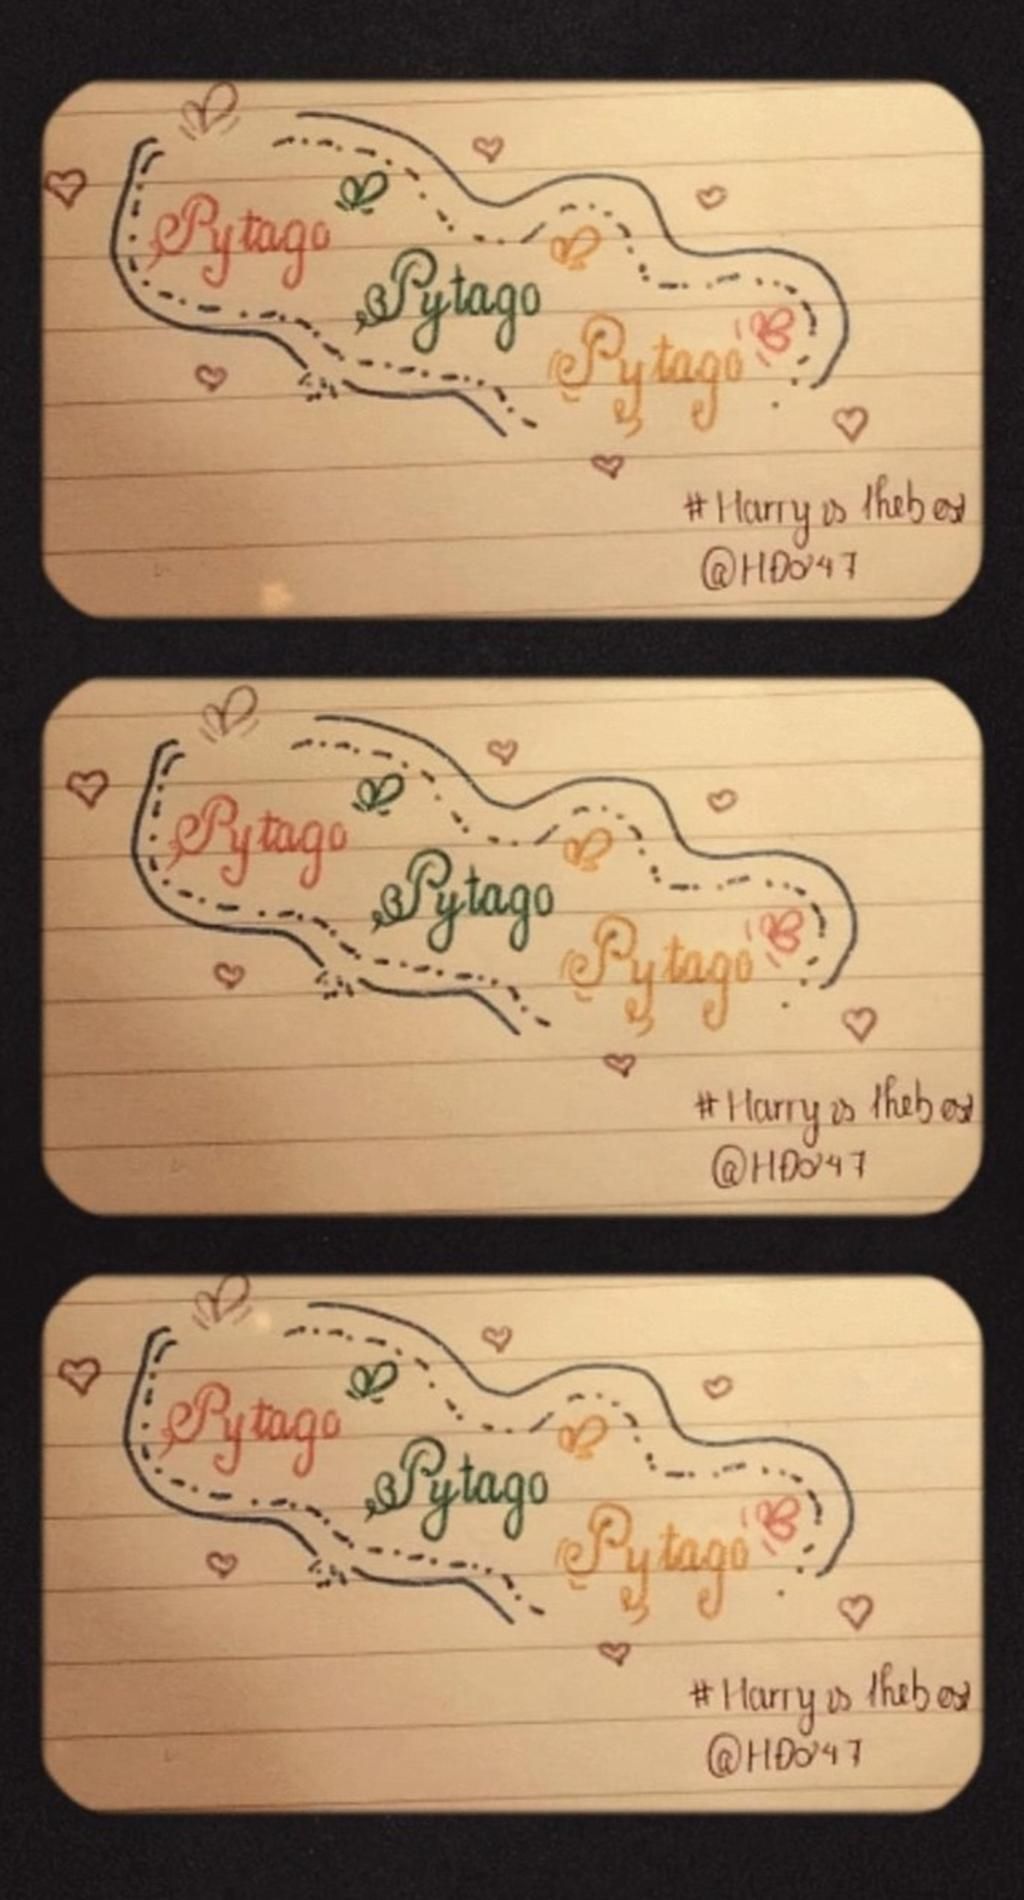 Pytago
Pytago
Pytago
#Harry is thebest
@HĐo'47
Pytago
Pytago
Pytago
#Harry is thebest
@HĐo'47
Pytago
Pytago
Pytago
#Harry is thebest
@HĐo'47